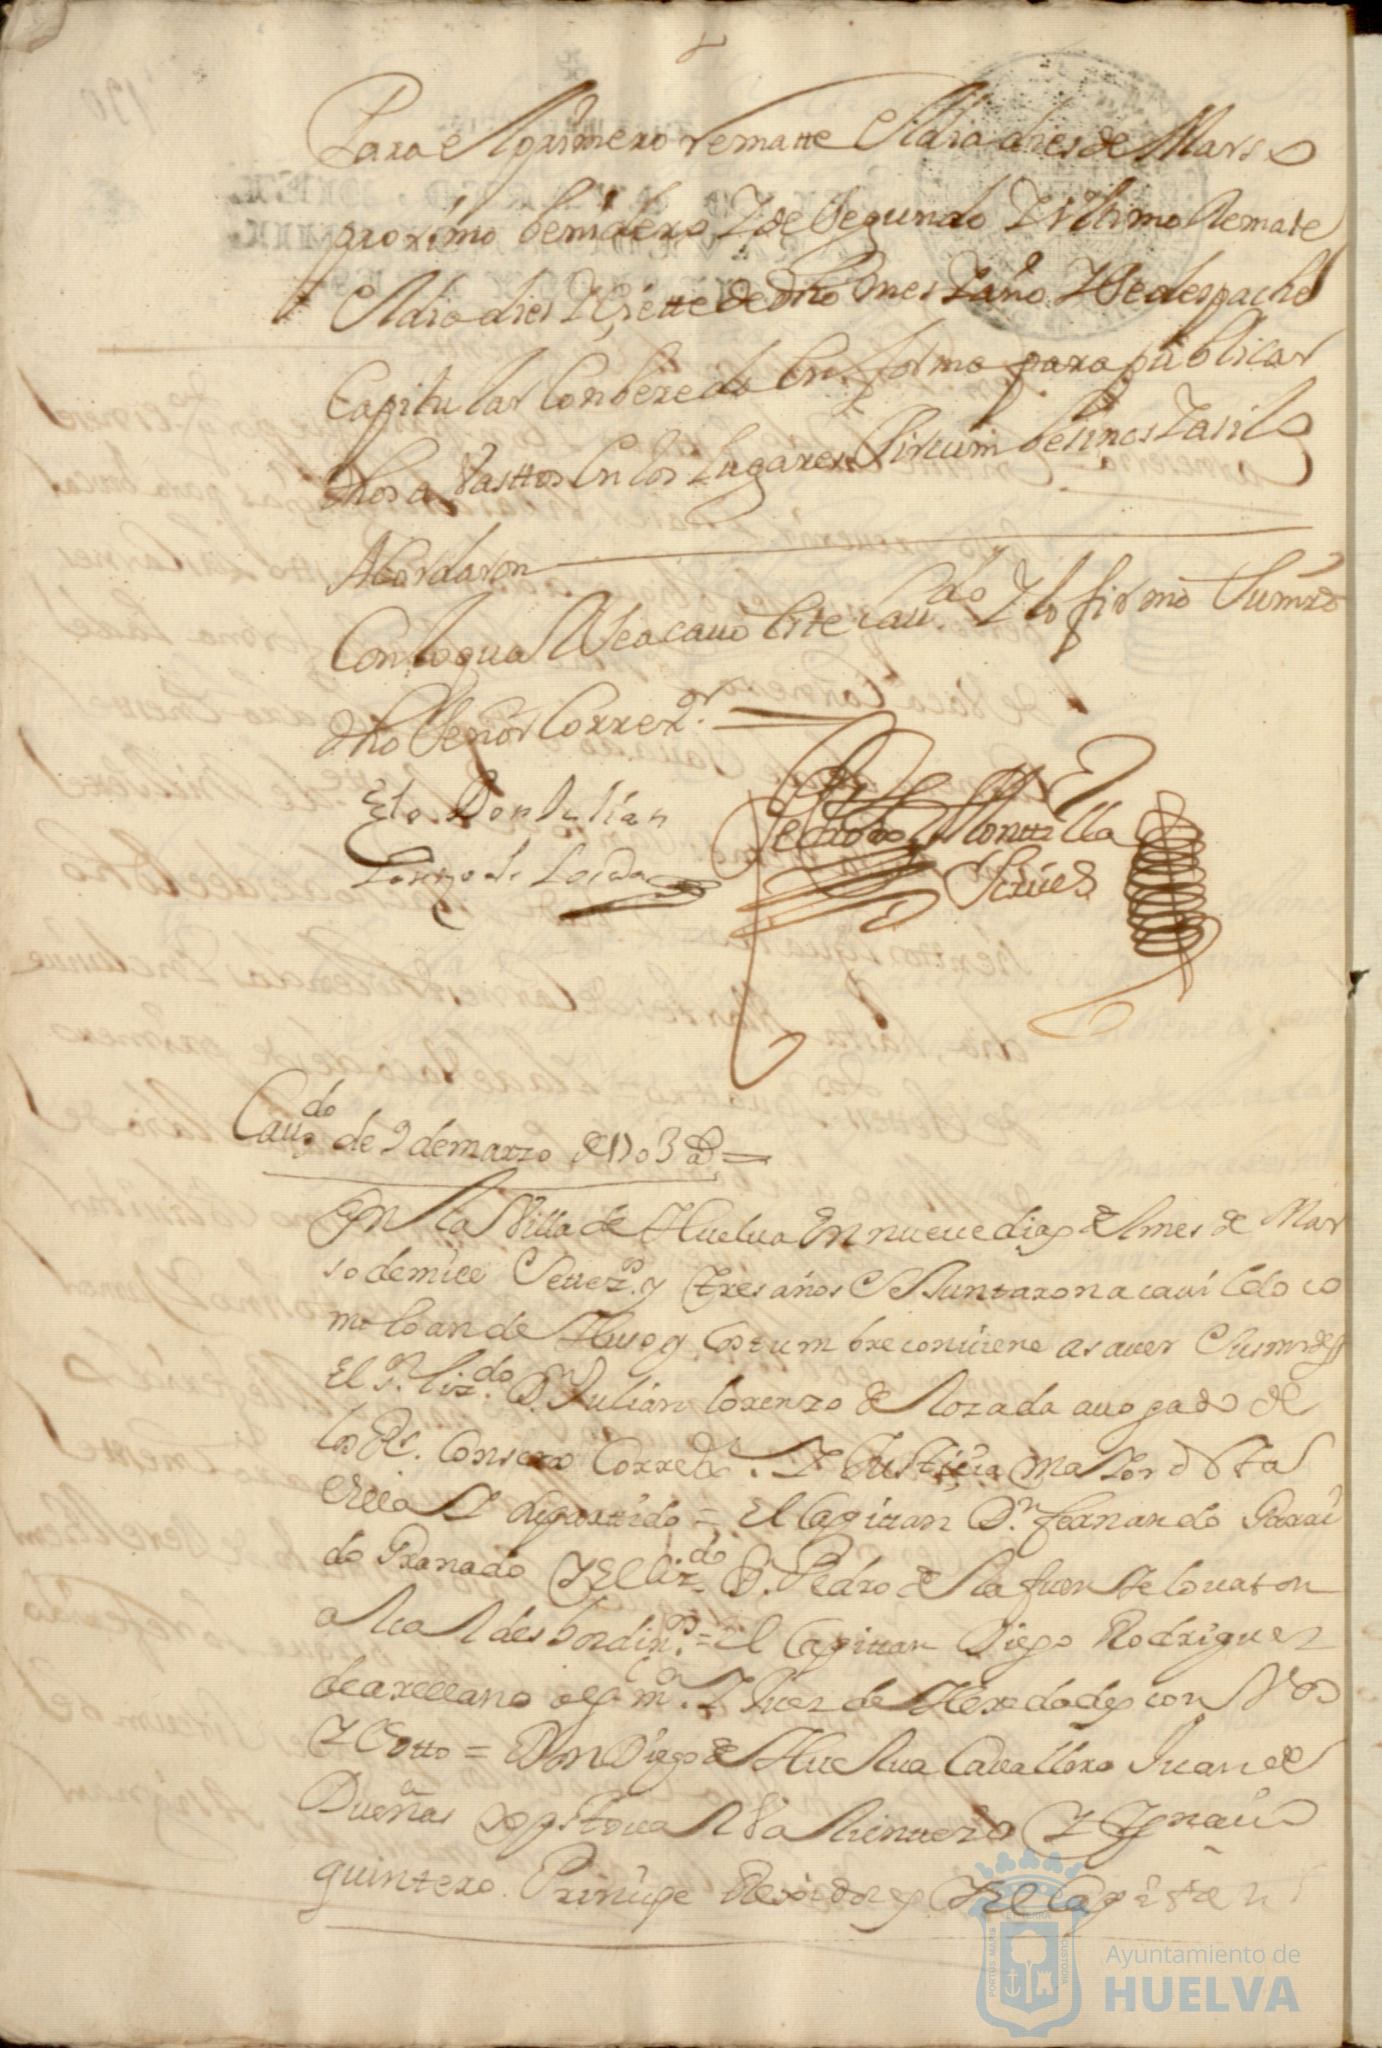 Para el primero rematte el dia dies de Marso
proximo benidero y de segundo y vltimo Remate
el dia dies y siette de dho mes y año y se despache
Capitular Con bereda en forma para publicar
dhos avasttos en los lugares Circum besinos y asi lo
Acordaron
Con lo qual se acauo este cau.do y lo firmo su mrd
dho Señor Correx.or
Ldo Don Julian
Lorenzo de Lozada
Pedro de Montilla
Scriue
Cau.do de 9 de marzo de 1703 a.s =
En la Villa de Huelua En nueue dias del mes de Mar
so de mill Settez.os y tres años Se Juntaron a cauildo co
mo lo an de Huso y Costumbre conuiene a sauer Sus mrdes
El s.r liz.do D.n Julian lorenzo de lozada auogado de
los R.s Consexo Correx.or y Justicia maior desta
Villa y su partido = El Capitan D.n fernando Garri
do Granado y El liz.do D. Pedro de la fuente louaton
alcaldes hordin.os = El Capitan Diego Rodriguez
de arellano alg.l m.or y Juez de Heredades con Voz
y Votto = Don Diego de Huelua Caballero Juan de
Dueñas xpstoual Valienttezo y Ygnaçio
quintero Prinçipe Rexidores y El Capitan
Ayuntamiento de
HUELVA
PORTUS MARIS
CUSTODIA